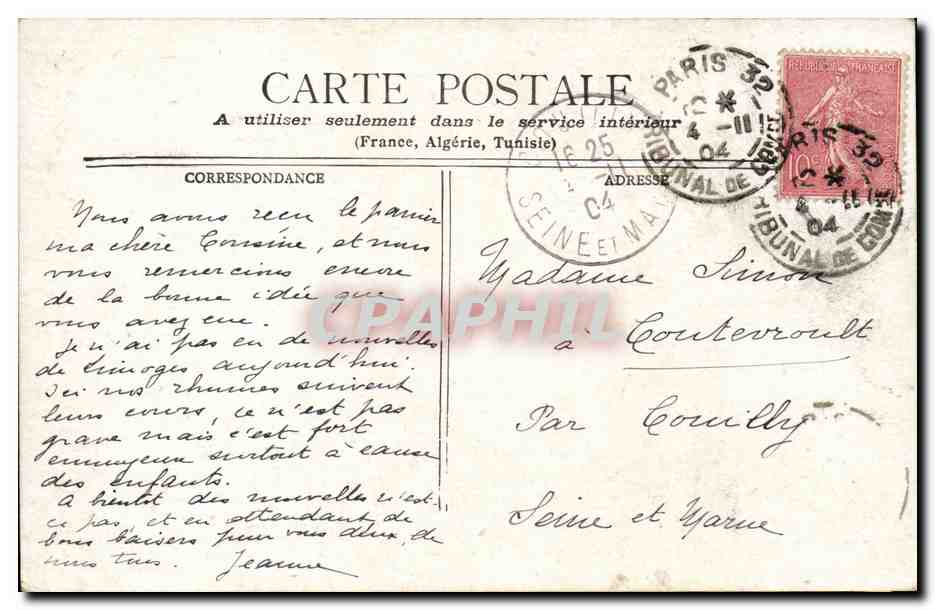 CARTE POSTALE
A utiliser seulement dans le service intérieur
(France, Algérie, Tunisie)
CORRESPONDANCE
Nous avons reçu le panier
ma chère Cousine, et nous
vous remercions encore
de la bonne idée que
vous avez eue.
Je n'ai pas eu de nouvelles
de Limoges aujourd'hui.
Ici nos rhumes suivent
leurs cours, ce n'est pas
grave mais c'est fort
ennuyeux surtout à cause
des enfants.
A bientôt des nouvelles n'est-
ce pas, et en attendant de
bons baisers pour vous deux, de
nous tous. Jeanne
ADRESSE
Madame Simon
à Coutevroult
Par Couilly
Seine et Marne
REPUBLIQUE FRANÇAISE
10c
PARIS 32
4 -11
04
TRIBUNAL DE COM
PARIS 32
-11
04
TRIBUNAL DE COM
16 25
04
SEINE ET MA
CPAPHIL